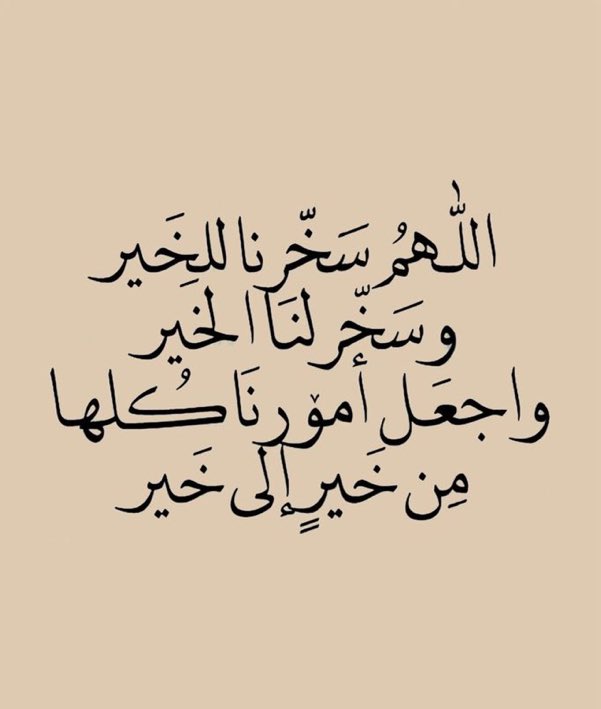 اللهمُ سَخّرنا للخَير
وسَخّرِ لنَا الخيِر
واجعَل أمورنَا كُلها
مِن خَيرٍ إلى خَير